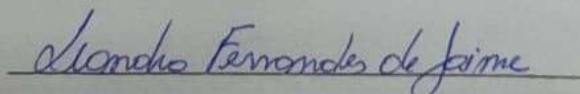 Leandro Fernandes de Jaime